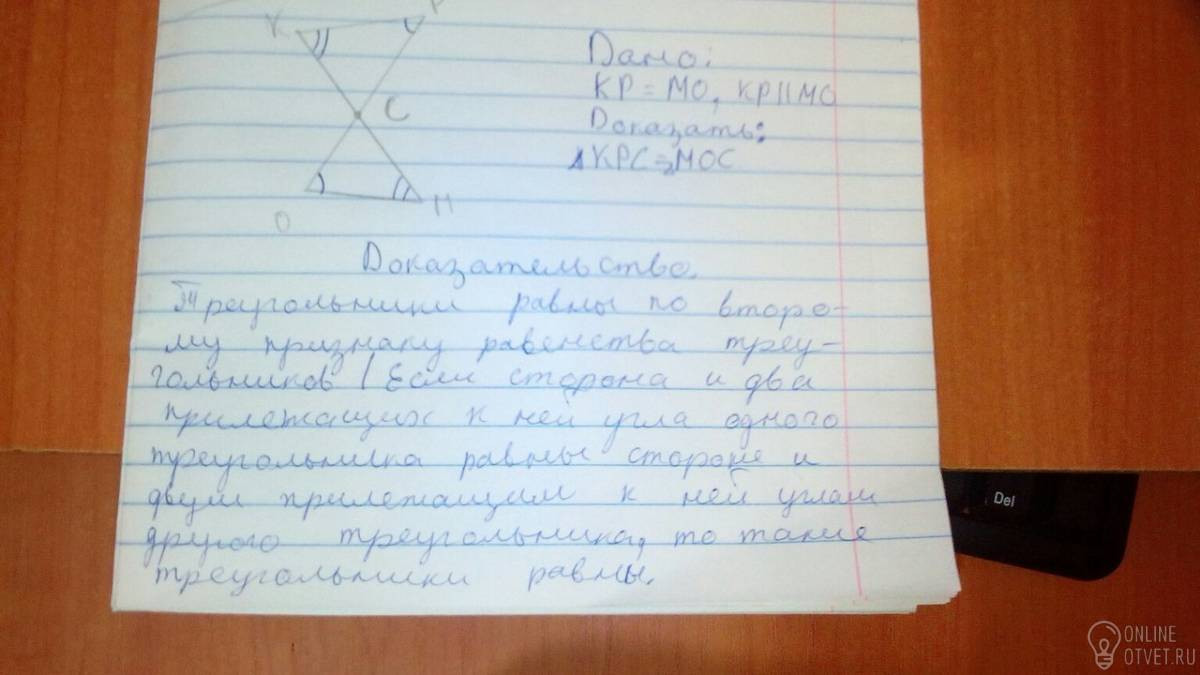 К Р
С
О М
Дано:
КР = МО, КР || МО
Доказать:
Δ КРС = МОС
Доказательство.
Треугольники равны по второ-
му признаку равенства треу-
гольников / Если сторона и два
прилежащих к ней угла одного
треугольника равны стороне и
двум прилежащим к ней углам
другого треугольника, то такие
треугольники равны.
Del
ONLINE
OTVET.RU